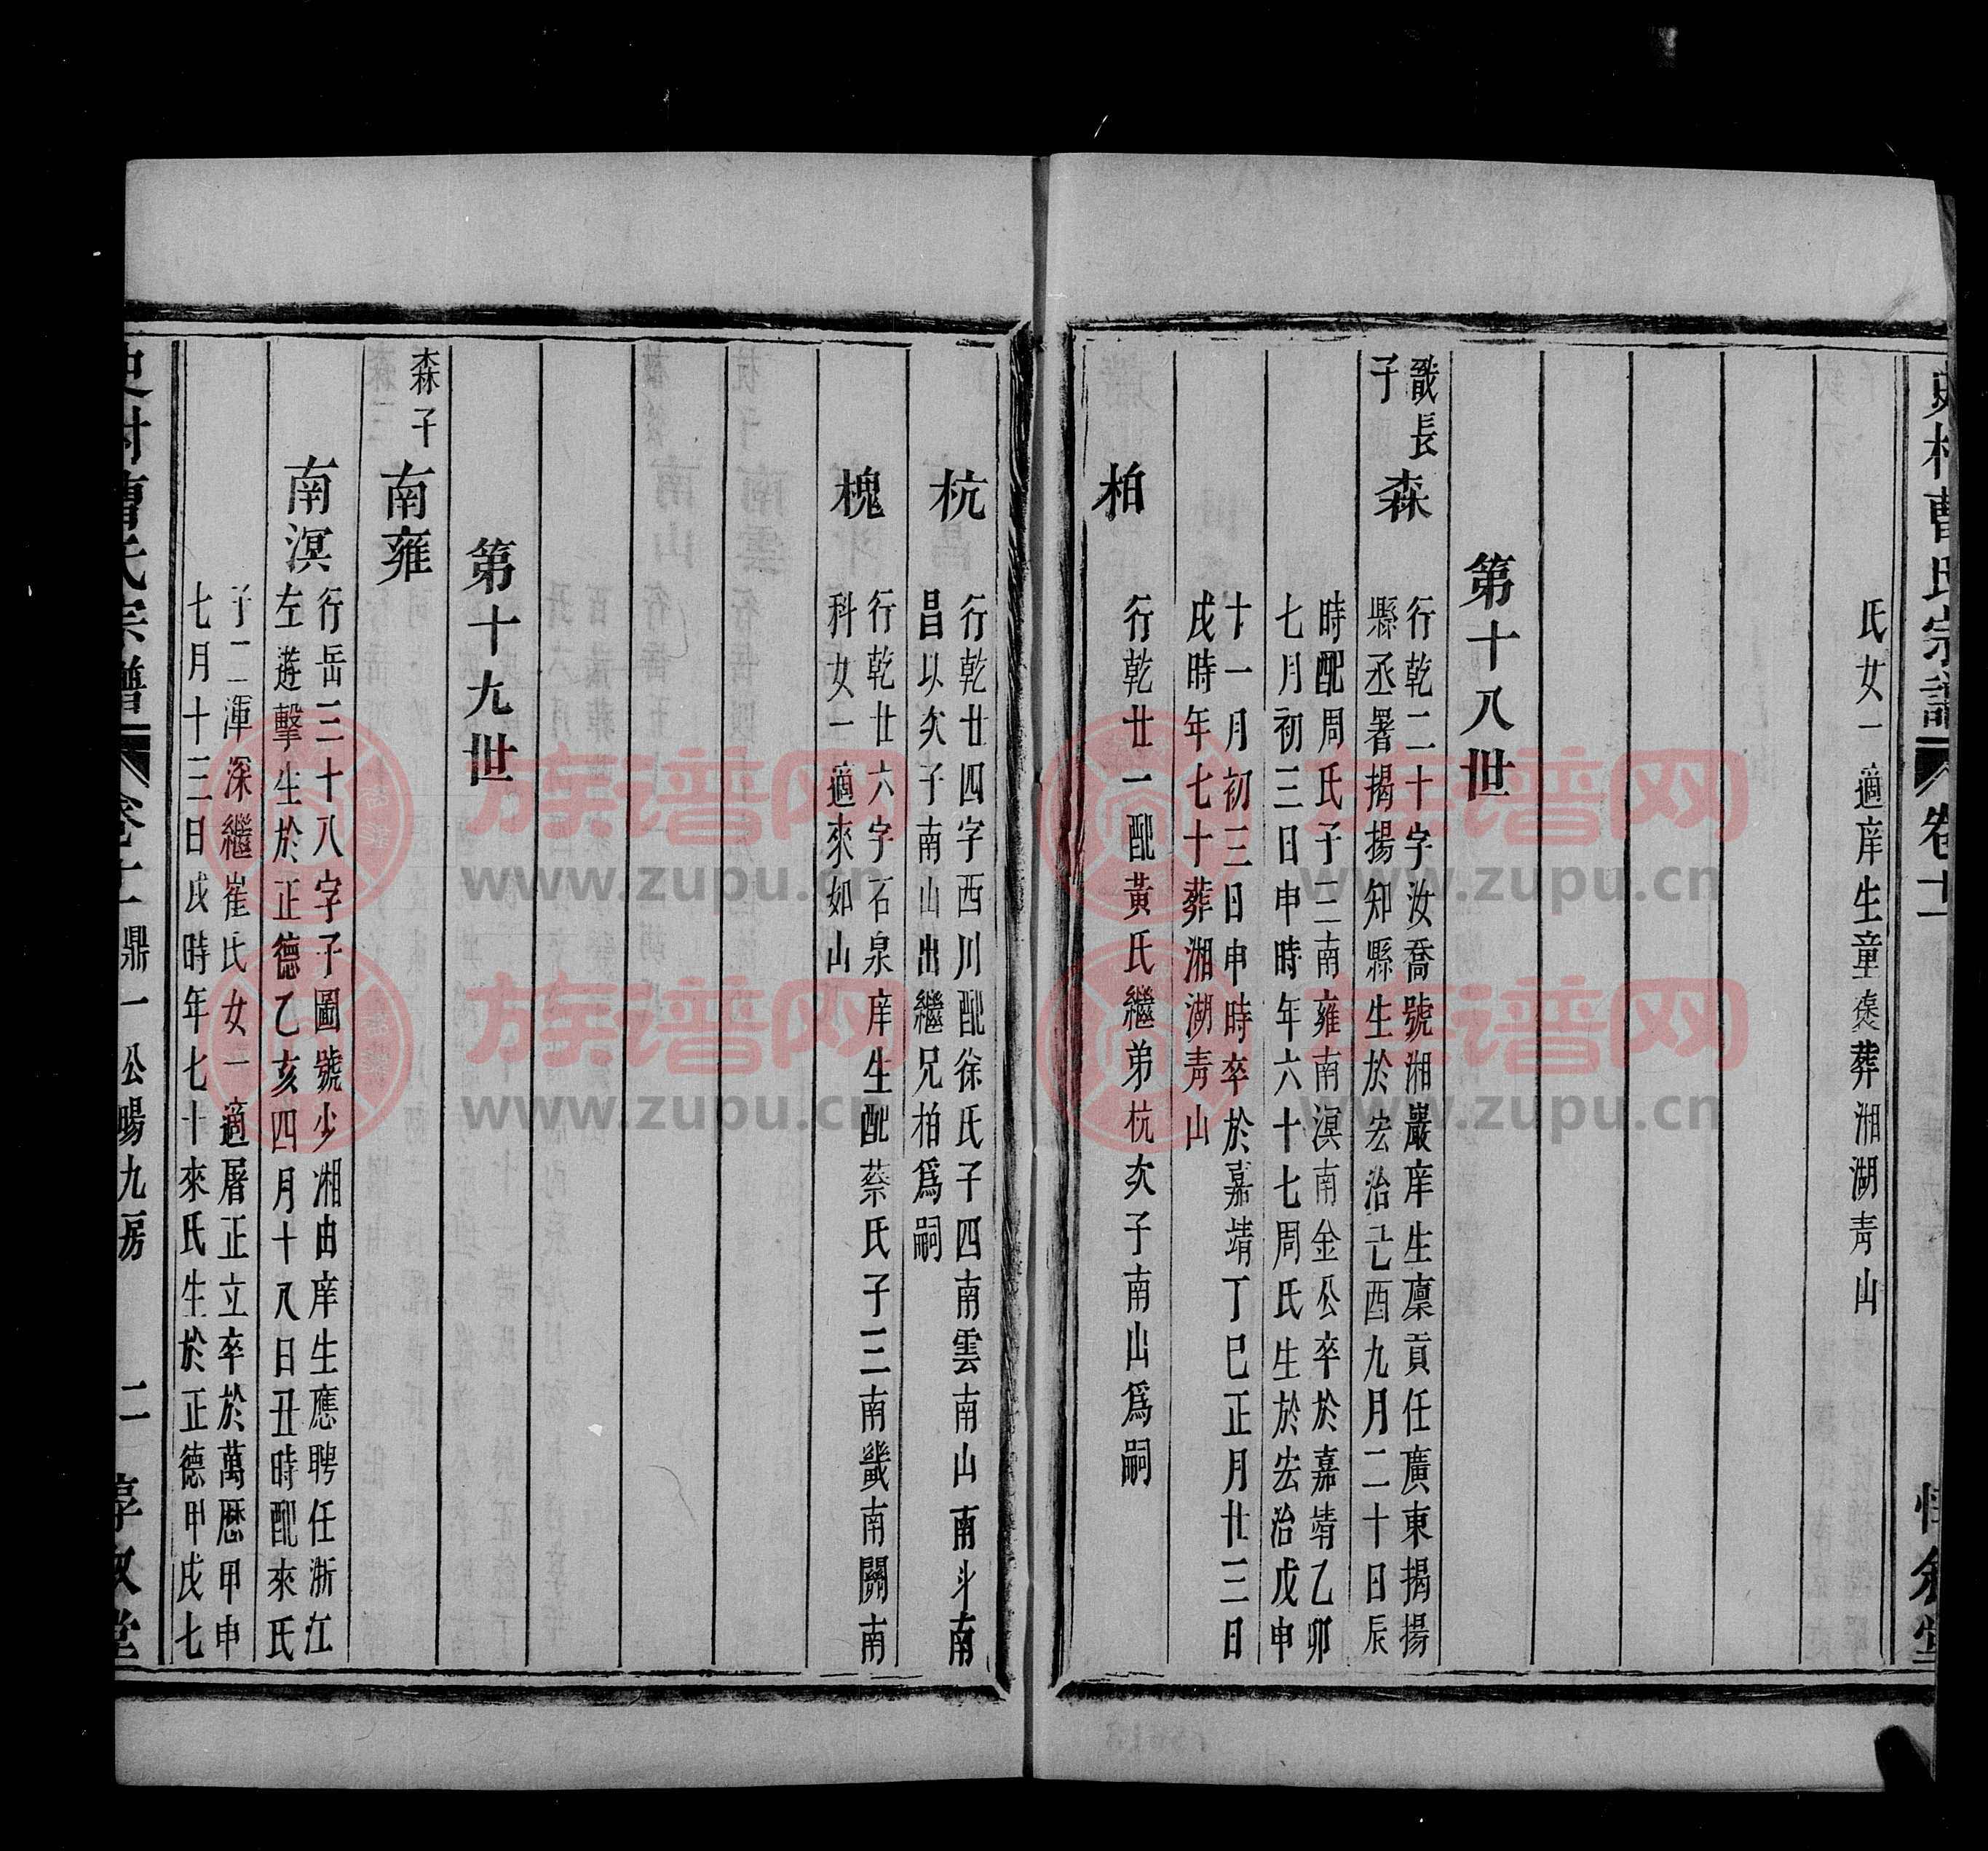 史村曹氏宗譜
卷十一
惇叙堂
氏女一適庠生童袞葬湘湖青山
第十八世
戩長
子
森
行乾二十字汝喬號湘巖庠生廩貢任廣東揭揚
縣丞署揭揚知縣生於宏治己酉九月二十日辰
時配周氏子三南雍南溟南金公卒於嘉靖乙卯
七月初三日申時年六十七周氏生於宏治戊申
十一月初三日申時卒於嘉靖丁巳正月廿三日
戌時年七十葬湘湖青山
柏
行乾廿一配黃氏繼弟杭次子南山爲嗣
杭
行乾廿四字西川配徐氏子四南雲南山南斗南
昌以次子南山出繼兄柏爲嗣
槐
行乾廿六字石泉庠生配蔡氏子三南畿南關南
科女一適來如山
第十九世
森子
南雍
南溟
行岳三十八字子圖號少湘由庠生應聘任浙江
左遊擊生於正德乙亥四月十八日丑時配來氏
子二渾深繼崔氏女一適屠正立卒於萬歷甲申
七月十三日戌時年七十來氏生於正德甲戌七
史村曹氏宗譜
卷十一
鼎一公暘九房
二
惇叙堂
族谱网
www.zupu.cn
族谱网
www.zupu.cn
族谱网
www.zupu.cn
族谱网
www.zupu.cn